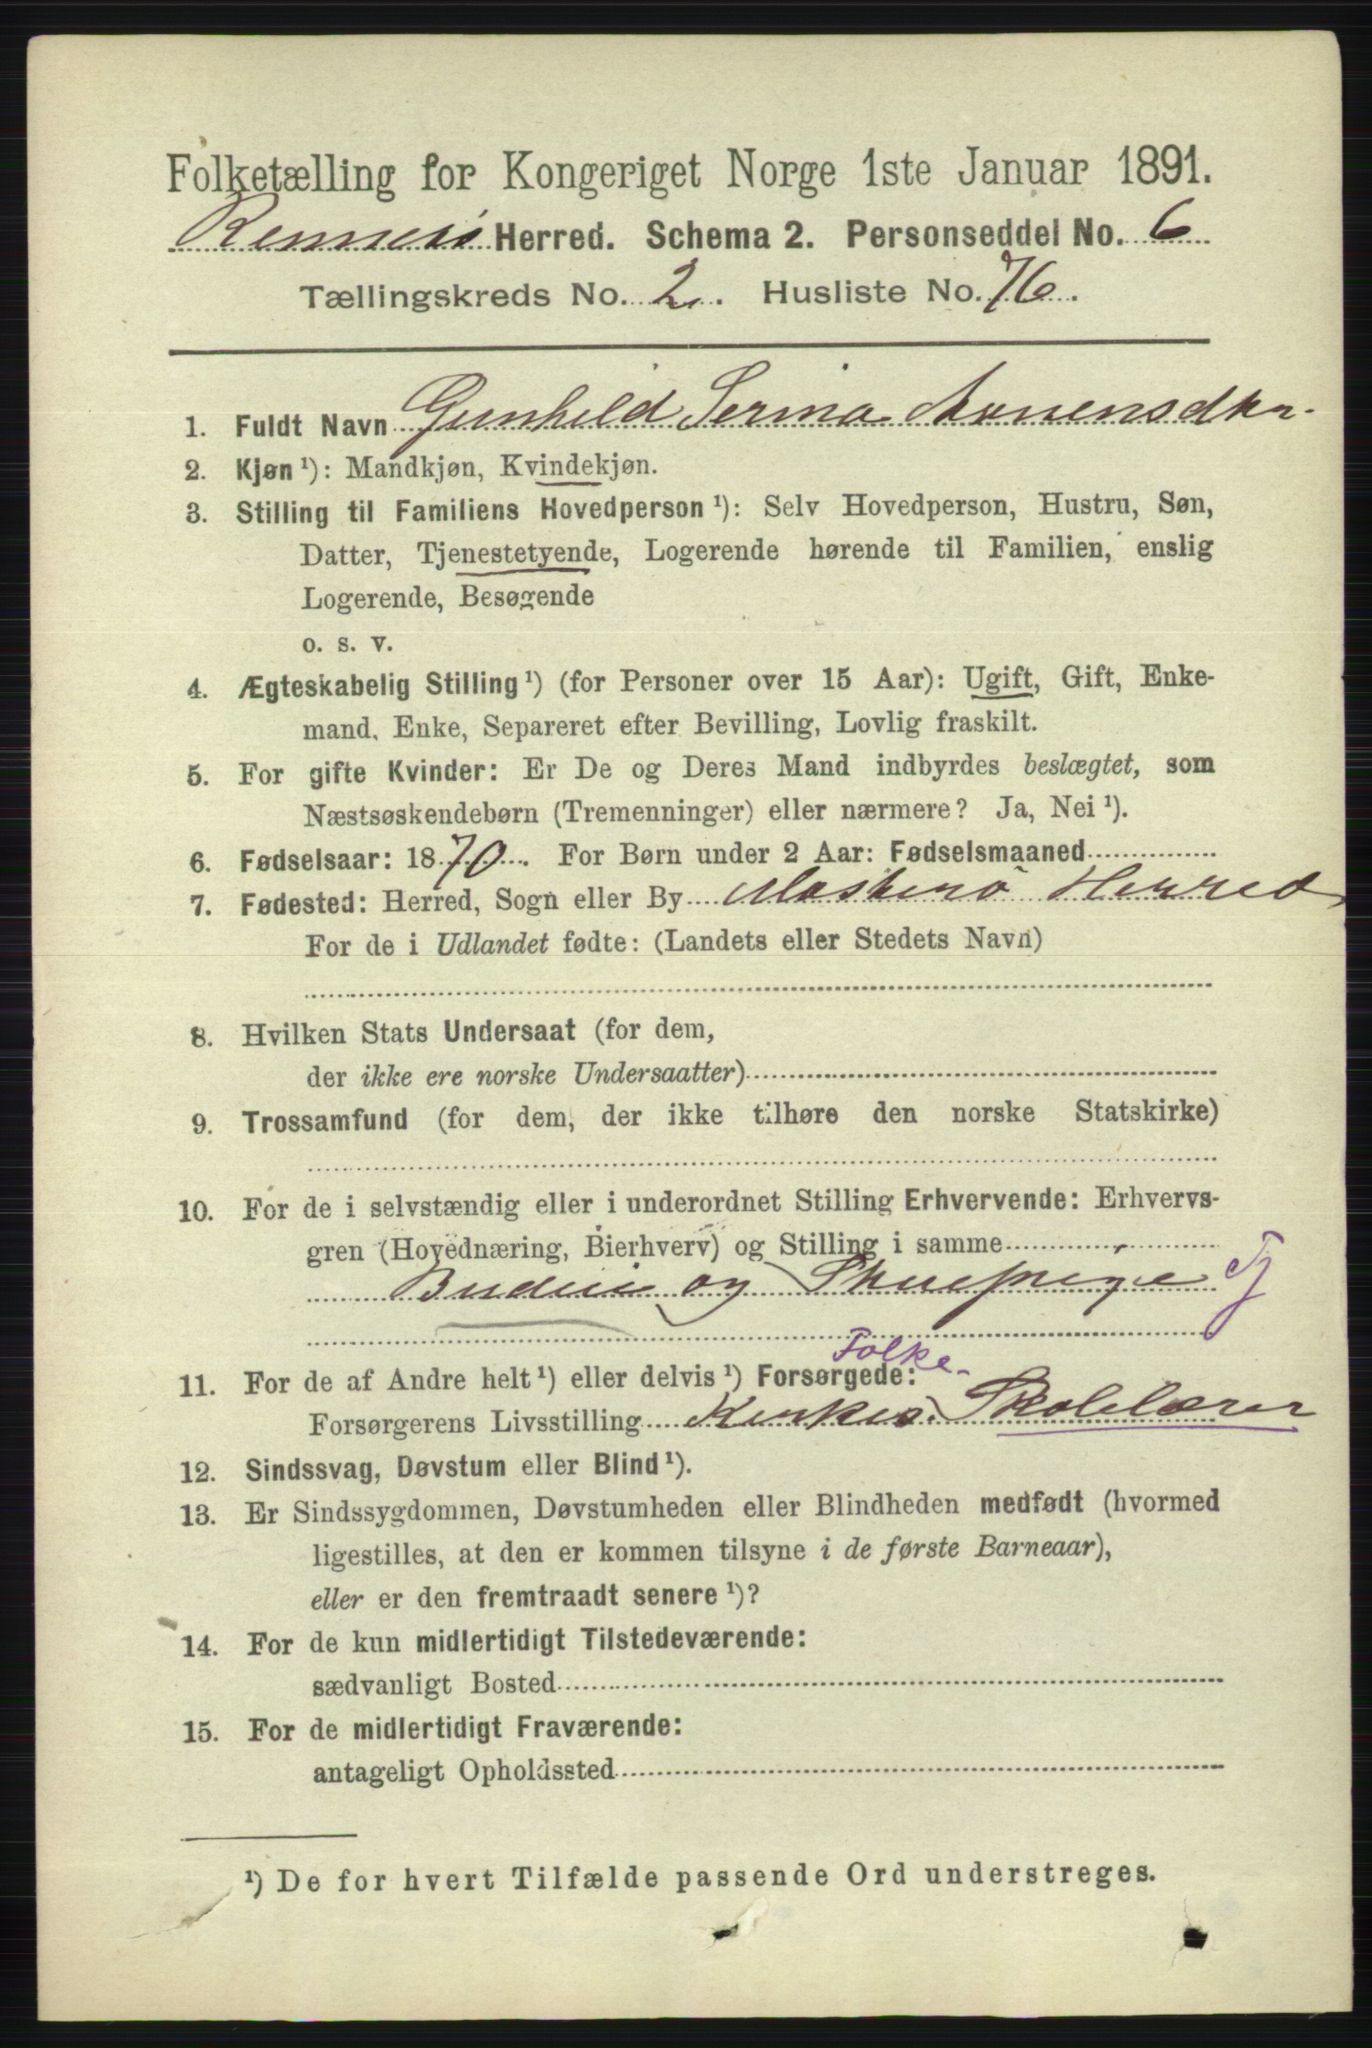 Folketælling for Kongeriget Norge 1ste Januar 1891.
Rennesø Herred. Schema 2. Personseddel No. 6
Tællingskreds No. 2. Husliste No. 76.
1. Fuldt Navn Gunhild Serina
2. Kjøn ¹): Mandkjøn, Kvindekjøn.
3. Stilling til Familiens Hovedperson ¹): Selv Hovedperson, Hustru, Søn,
Datter, Tjenestetyende, Logerende hørende til Familien, enslig
Logerende, Besøgende
o. s. v.
4. Ægteskabelig Stilling ¹) (for Personer over 15 Aar): Ugift, Gift, Enke-
mand, Enke, Separeret efter Bevilling, Lovlig fraskilt.
5. For gifte Kvinder: Er De og Deres Mand indbyrdes beslægtet, som
Næstsøskendebørn (Tremenninger) eller nærmere? Ja, Nei ¹).
6. Fødselsaar: 1870. For Børn under 2 Aar: Fødselsmaaned
7. Fødested: Herred, Sogn eller By Mosterø Herred
For de i Udlandet fødte: (Landets eller Stedets Navn)
8. Hvilken Stats Undersaat (for dem,
der ikke ere norske Undersaatter)
9. Trossamfund (for dem, der ikke tilhøre den norske Statskirke)
10. For de i selvstændig eller i underordnet Stilling Erhvervende: Erhvervs-
gren (Hovednæring, Bierhverv) og Stilling i samme
Budeie og Stuepige Tj
Folke-
11. For de af Andre helt ¹) eller delvis ¹) Forsørgede:
Forsørgerens Livsstilling Kirkes. Skolelærer
12. Sindssvag, Døvstum eller Blind ¹).
13. Er Sindssygdommen, Døvstumheden eller Blindheden medfødt (hvormed
ligestilles, at den er kommen tilsyne i de første Barneaar),
eller er den fremtraadt senere ¹)?
14. For de kun midlertidigt Tilstedeværende:
sædvanligt Bosted
15. For de midlertidigt Fraværende:
antageligt Opholdssted
¹) De for hvert Tilfælde passende Ord understreges.